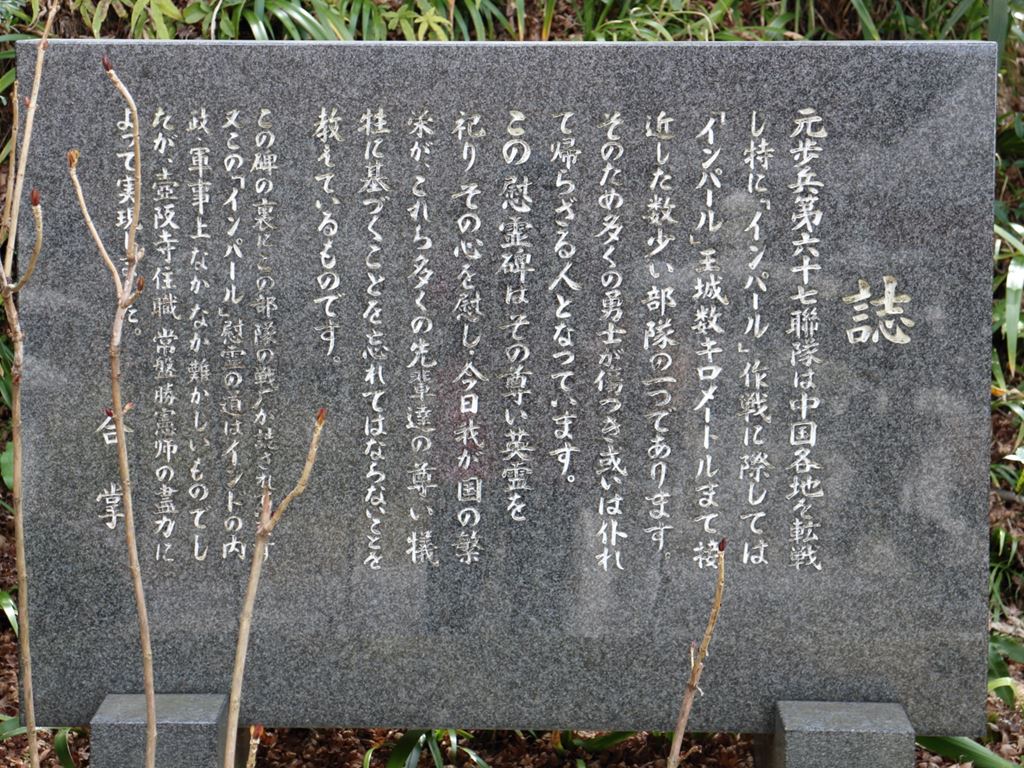 誌
元歩兵第六十七聯隊は中国各地を転戦
し特に「インパール」作戦に際しては
「インパール」王城数キロメートルまで接
近した数少い部隊の一つであります。
そのため多くの勇士が傷つき或いは仆れ
て帰らざる人となっています。
この慰霊碑はその尊い英霊を
祀りその心を慰し今日我が国の繁
栄が、これら多くの先輩達の尊い犠
牲に基づくことを忘れてはならないことを
教えているものです。
この碑の裏にこの部隊の戦 が され す
又この「インパール」慰霊の道はインドの内
政軍事上なかなか難かしいものでし
たが、壺阪寺住職 常盤勝憲師の盡力に
よって実現し た。
合掌